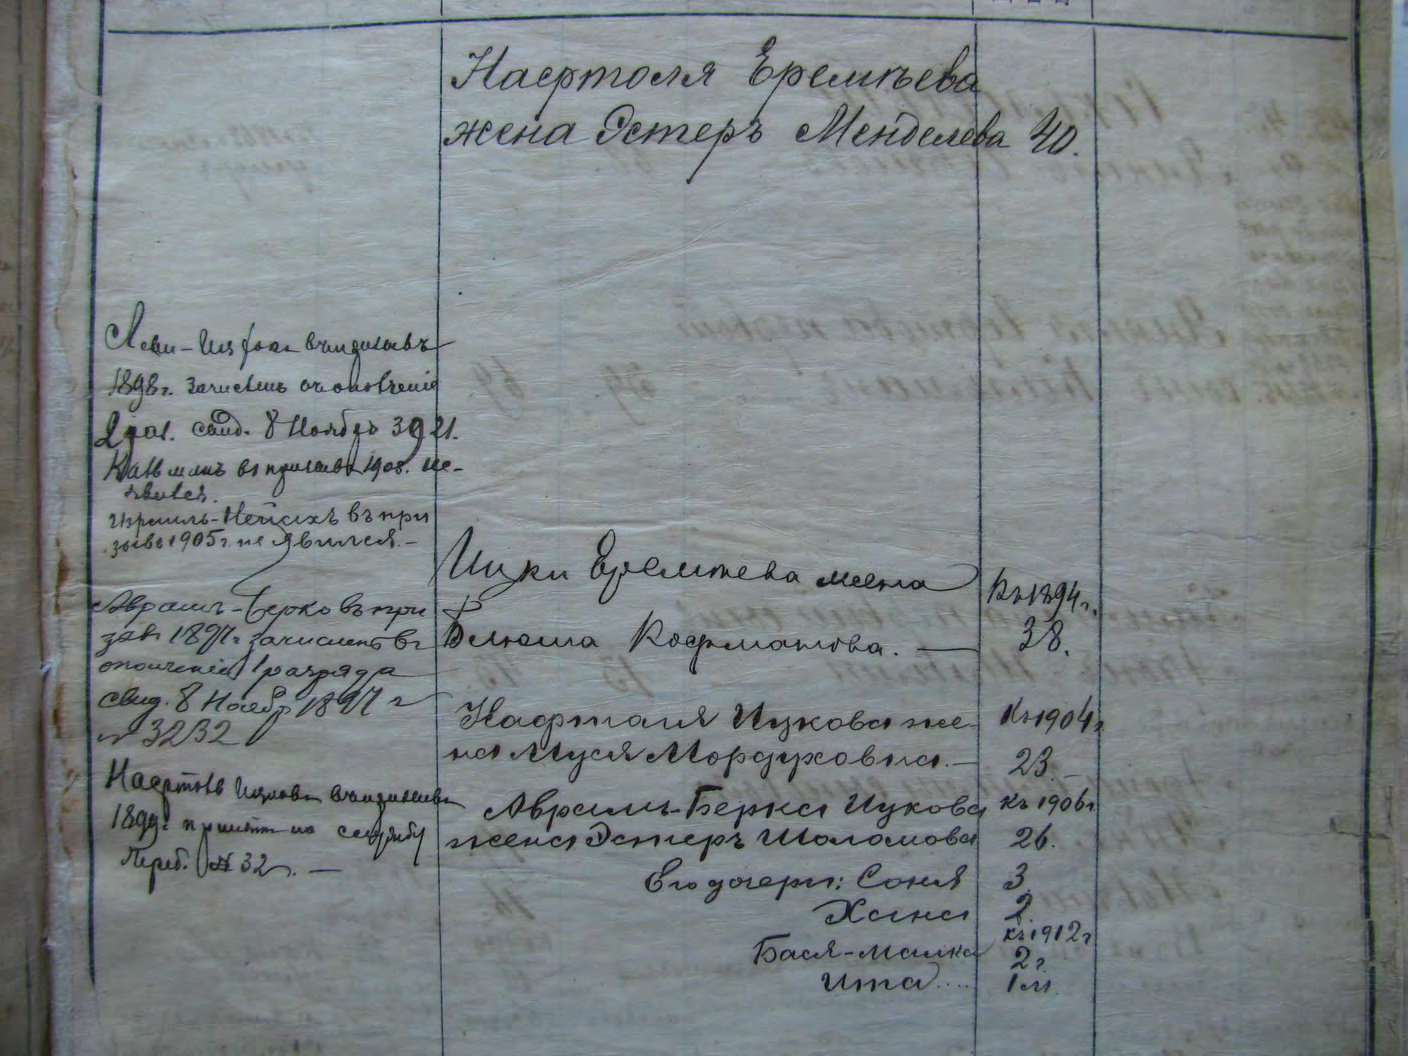 Нафтоля Еремѣева
жена Эстеръ Менделева 40.
Леви-Израиль въ призывъ
1898 г. зачисленъ въ ополченіе
2 раз. свид. 8 Ноября 3921.
Кальманъ въ призывъ 1903. не-
явился.
Израиль-Пейсахъ въ при
зывъ 1905 г. не явился.—
Ицки Еремѣева жена Къ 1894 г.
Блюма Кофманова. — 38.
Абрамъ-Берко въ при
зывъ 1897 г. зачисленъ въ
ополченіе 1 разряда
свид. 8 Ноябр 1897 г
№ 3232
Нафталя Ицкова же- Къ 1904 г
на Муся Мордуховна.— 23.—
Нафтоль Ицковъ въ призывъ
1899 г. принятъ на службу
Жреб. № 32. —
Абрамъ-Берка Ицкова къ 1906 г
жена Эстеръ Шоломова 26.
Его дочери: Соня 3
Хана 2.
къ 1912 г
Бася-Малка 2 г.
Ита.... 1 м.